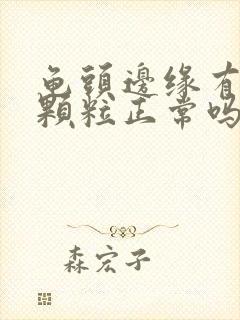 龟頭邊缘有
顆粒正常吗
森宏子